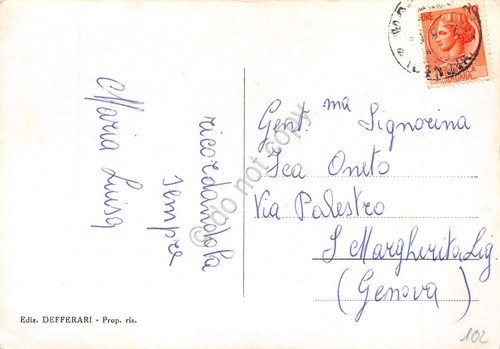 ricordandola
sempre
Maria Luisa
Gent.ma Signorina
Isa Oneto
Via Palestro
S Margherita Lig.
(Genova)
Ediz. DEFFERARI - Prop. ris.
102
LIRE
do not copy